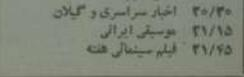 ۲۰/۳۰ اخبار سراسری و گیلان
۲۱/۱۵ موسیقی ایرانی
۲۱/۴۵ فیلم سینمائی هفته